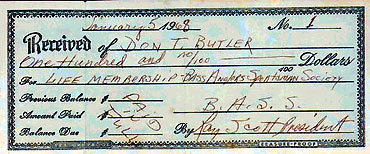 January 5 1968 No. 1
Received of DON T. BUTLER
One Hundred and no/100 100 Dollars
For LIFE MEMBERSHIP BASS Anglers Sportsman Society
Previous Balance $
Amount Paid $ B. A. S. S.
Balance Due $ By Ray Scott President
SAFETY-PROOF